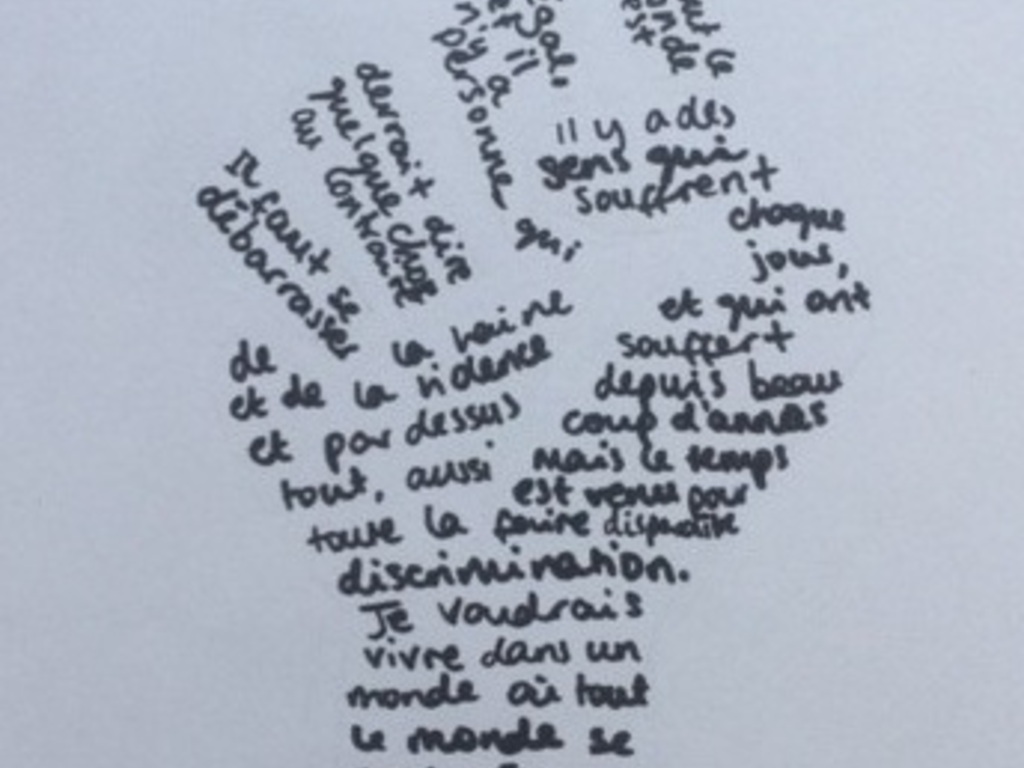 ut ce
onde
est
égal,
et il
n'y a
personne
qui
devrait dire
quelque chose
au contraire
Il faut se
débarrasser
de la haine
et de la violence
et par dessus
tout, aussi
toute la
discrimination.
Il y a des
gens qui
souffrent
chaque
jour,
et qui ont
souffert
depuis beau
coup d'annes
Mais le temps
est venu pour
faire disparaître
Je voudrais
vivre dans un
monde où tout
le monde se